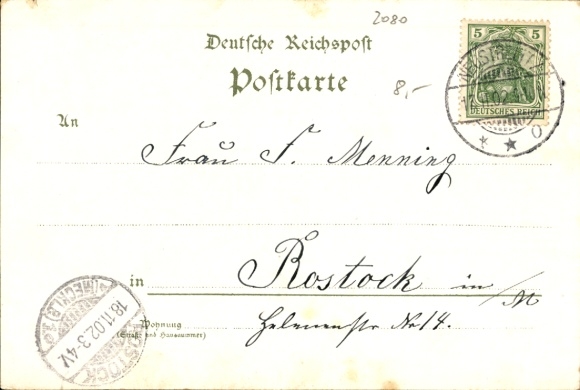 2080
Deutsche Reichspost
Postkarte
8,-
5 5
DEUTSCHES REICH
An
Frau F. Menning
in Rostock in/M
Wohnung
(Straße und Hausnummer)
No 14.
ROSTOCK
(MECKLB)
18.11.02.3-4V